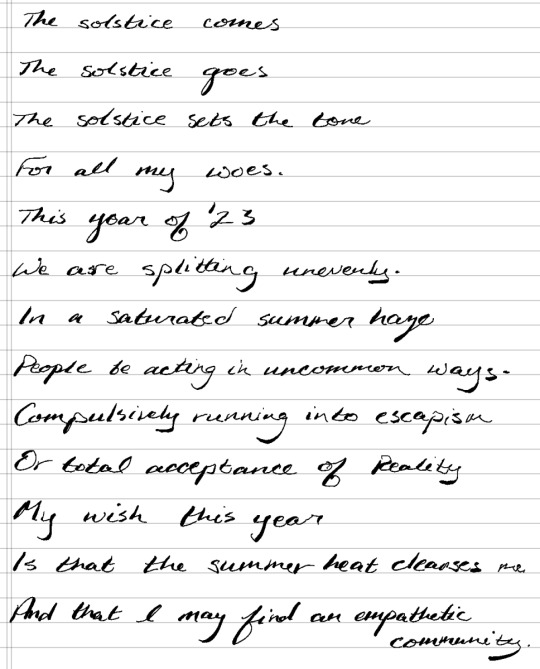 The solstice comes
The solstice goes
The solstice sets the tone
For all my woes.
This year of '23
We are splitting unevenly.
In a saturated summer haze
People be acting in uncommon ways.
Compulsively running into escapism
Or total acceptance of Reality
My wish this year
Is that the summer heat cleanses me
And that I may find an empathetic
community.